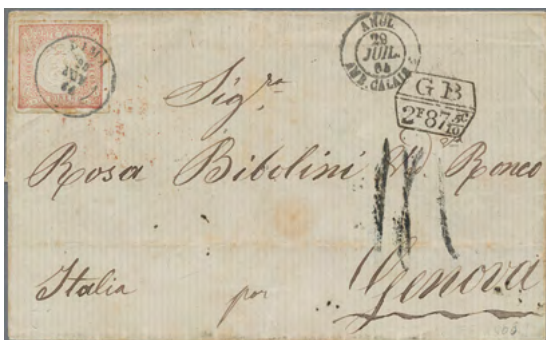 LIMA
ANGL.
29
JUIL.
64
AMB. CALAIS
GB
2F87 5c/10
Sigra
Rosa Bibolini Ronco
Italia
por
Genova